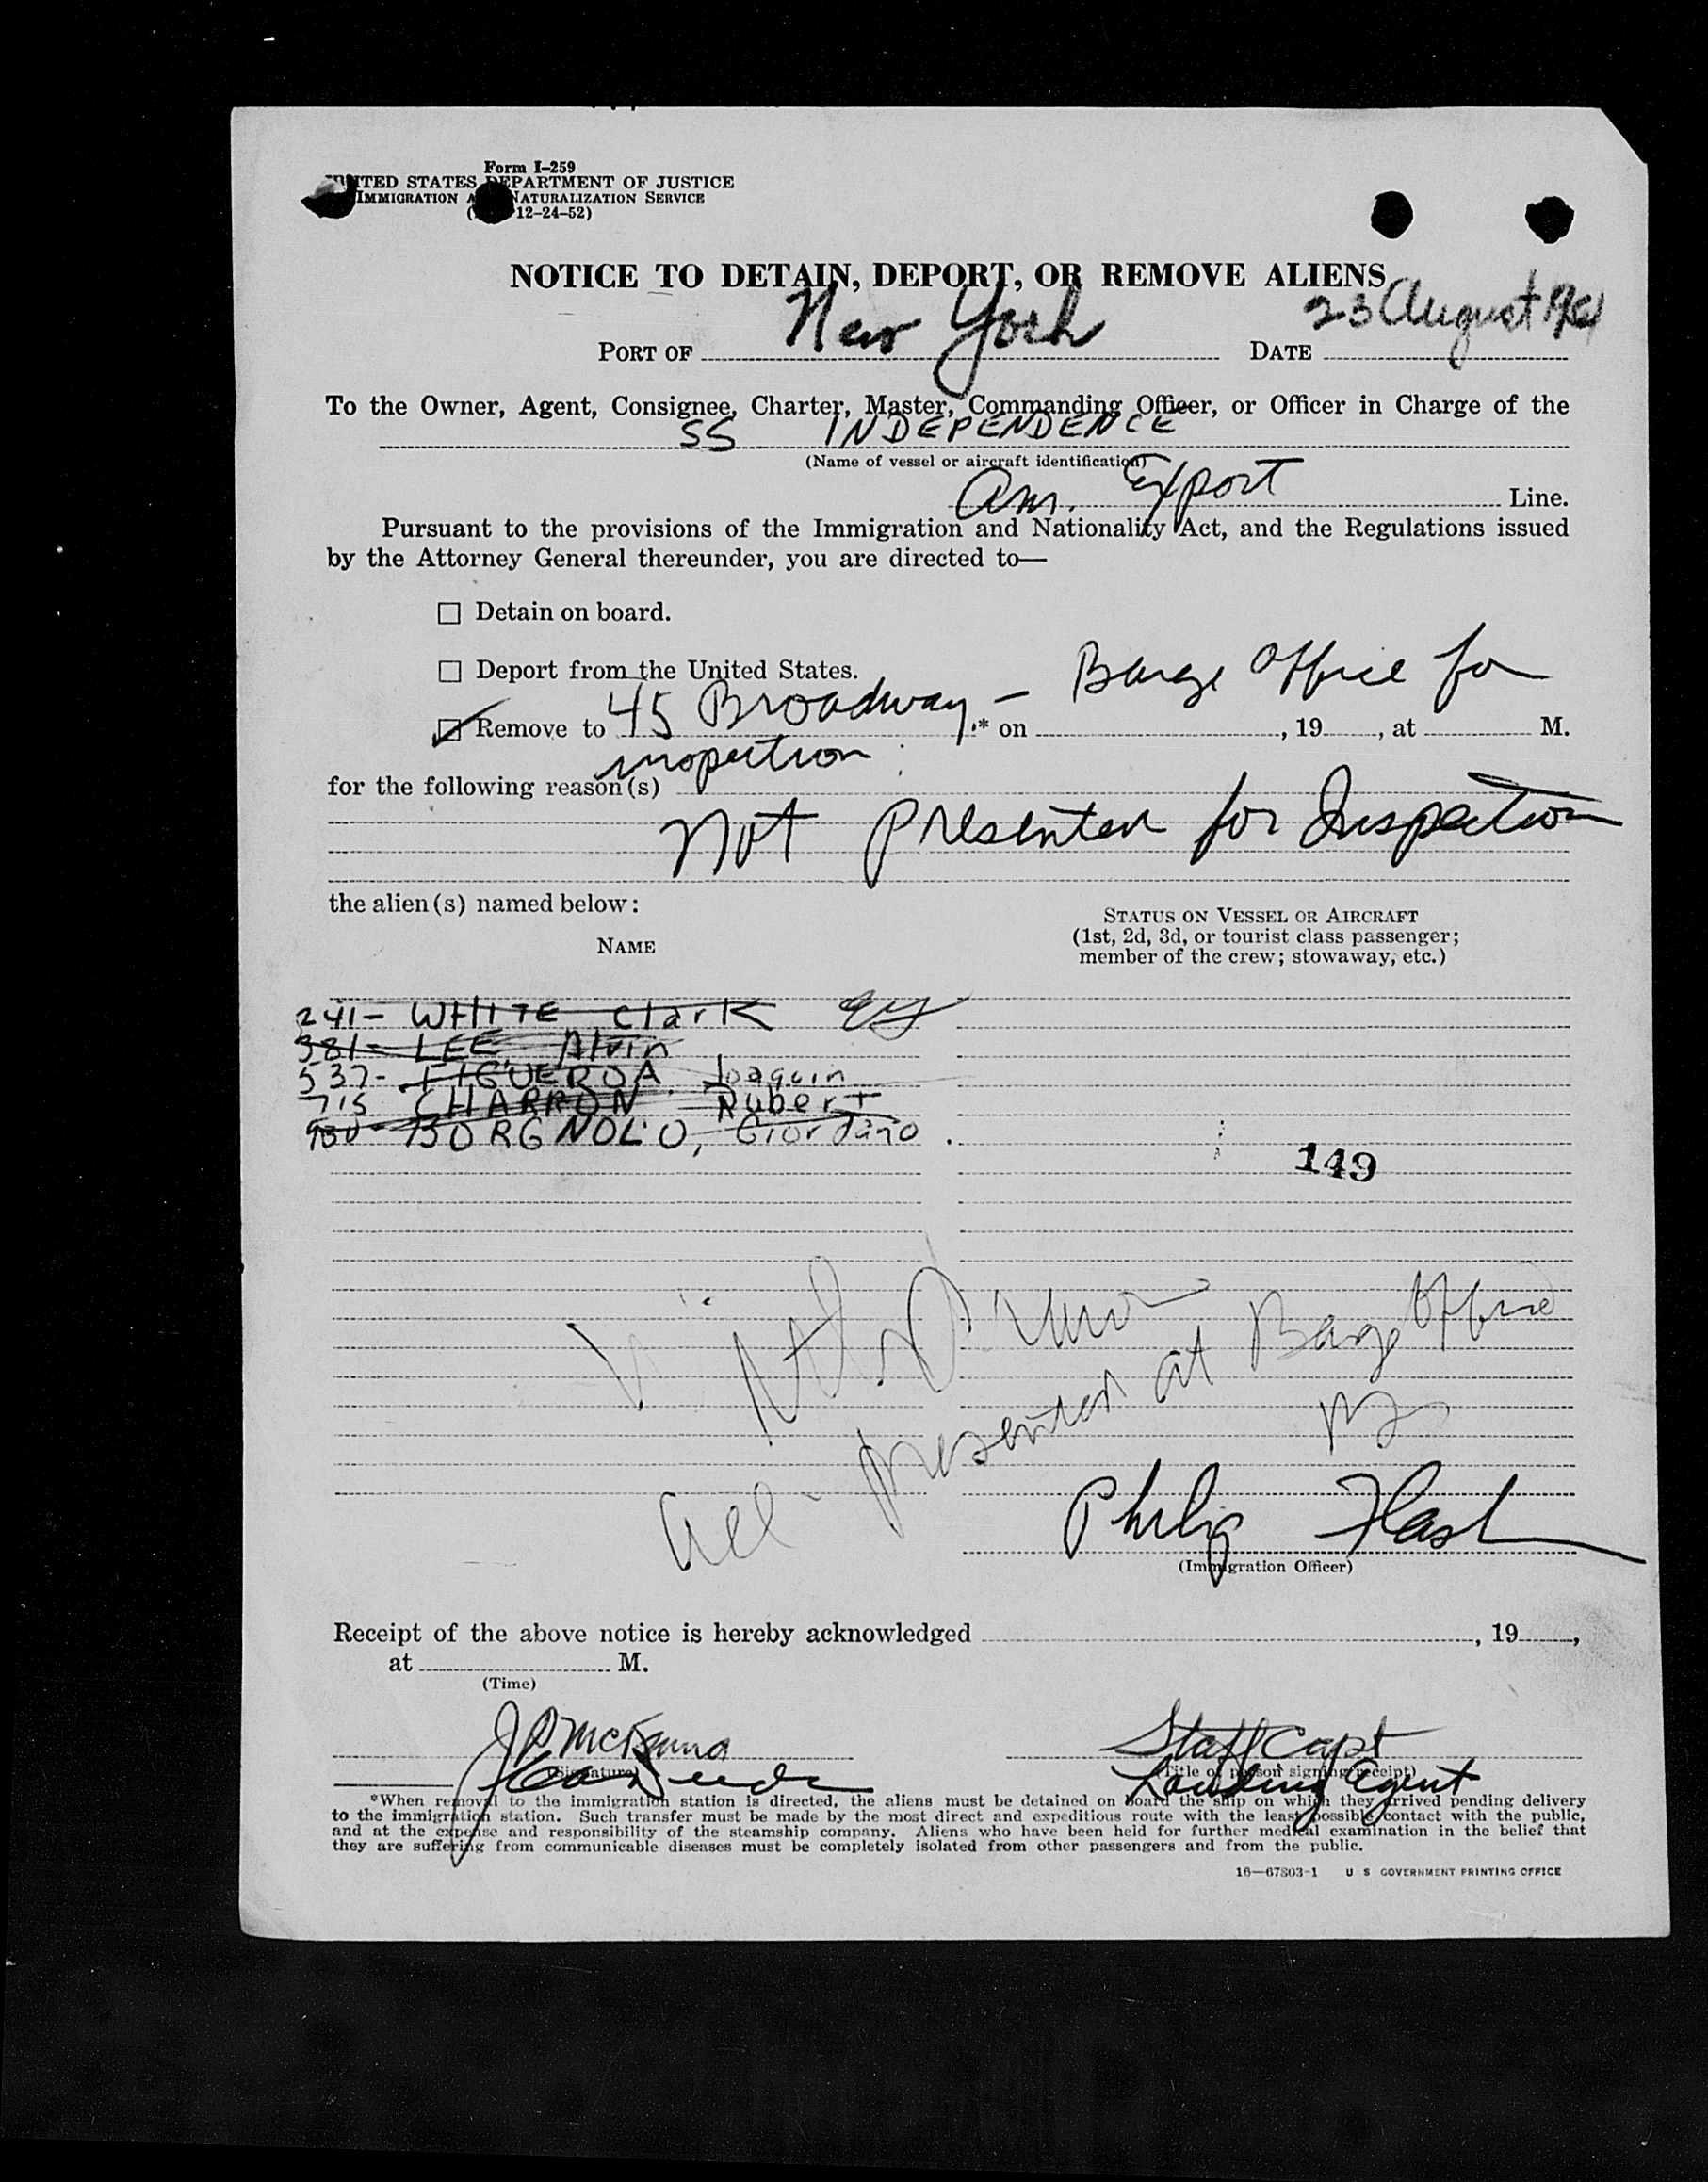 Form I-259
UNITED STATES DEPARTMENT OF JUSTICE
IMMIGRATION NATURALIZATION SERVICE
12-24-52)
NOTICE TO DETAIN, DEPORT, OR REMOVE ALIENS
PORT OF New York DATE 23 August
To the Owner, Agent, Consignee, Charter, Master, Commanding Officer, or Officer in Charge of the
SS INDEPENDENCE
(Name of vessel or aircraft identification)
Am. Export Line.
Pursuant to the provisions of the Immigration and Nationality Act, and the Regulations issued
by the Attorney General thereunder, you are directed to—
☐ Detain on board.
☐ Deport from the United States.
☑ Remove to 45 Broadway - Barge Office for .* on , 19 , at M.
inspection
for the following reason(s)
Not Presented for Inspection
the alien(s) named below:
NAME
STATUS ON VESSEL OR AIRCRAFT
(1st, 2d, 3d, or tourist class passenger;
member of the crew; stowaway, etc.)
241- WHITE Clark
381- LEE Alvin
537- FIGUEROA Joaquin
715 CHARRON Rubert
930- BORGNOLO, Giordano
149
All - presented at Barge Office
Philip Flash
(Immigration Officer)
Receipt of the above notice is hereby acknowledged , 19 ,
at M.
(Time)
J P McKenna
Staff Capt
(Signature)
(Title of person signing receipt)
Landing Agent
*When removal to the immigration station is directed, the aliens must be detained on board the ship on which they arrived pending delivery
to the immigration station. Such transfer must be made by the most direct and expeditious route with the least possible contact with the public,
and at the expense and responsibility of the steamship company. Aliens who have been held for further medical examination in the belief that
they are suffering from communicable diseases must be completely isolated from other passengers and from the public.
16—67803-1 U S GOVERNMENT PRINTING OFFICE